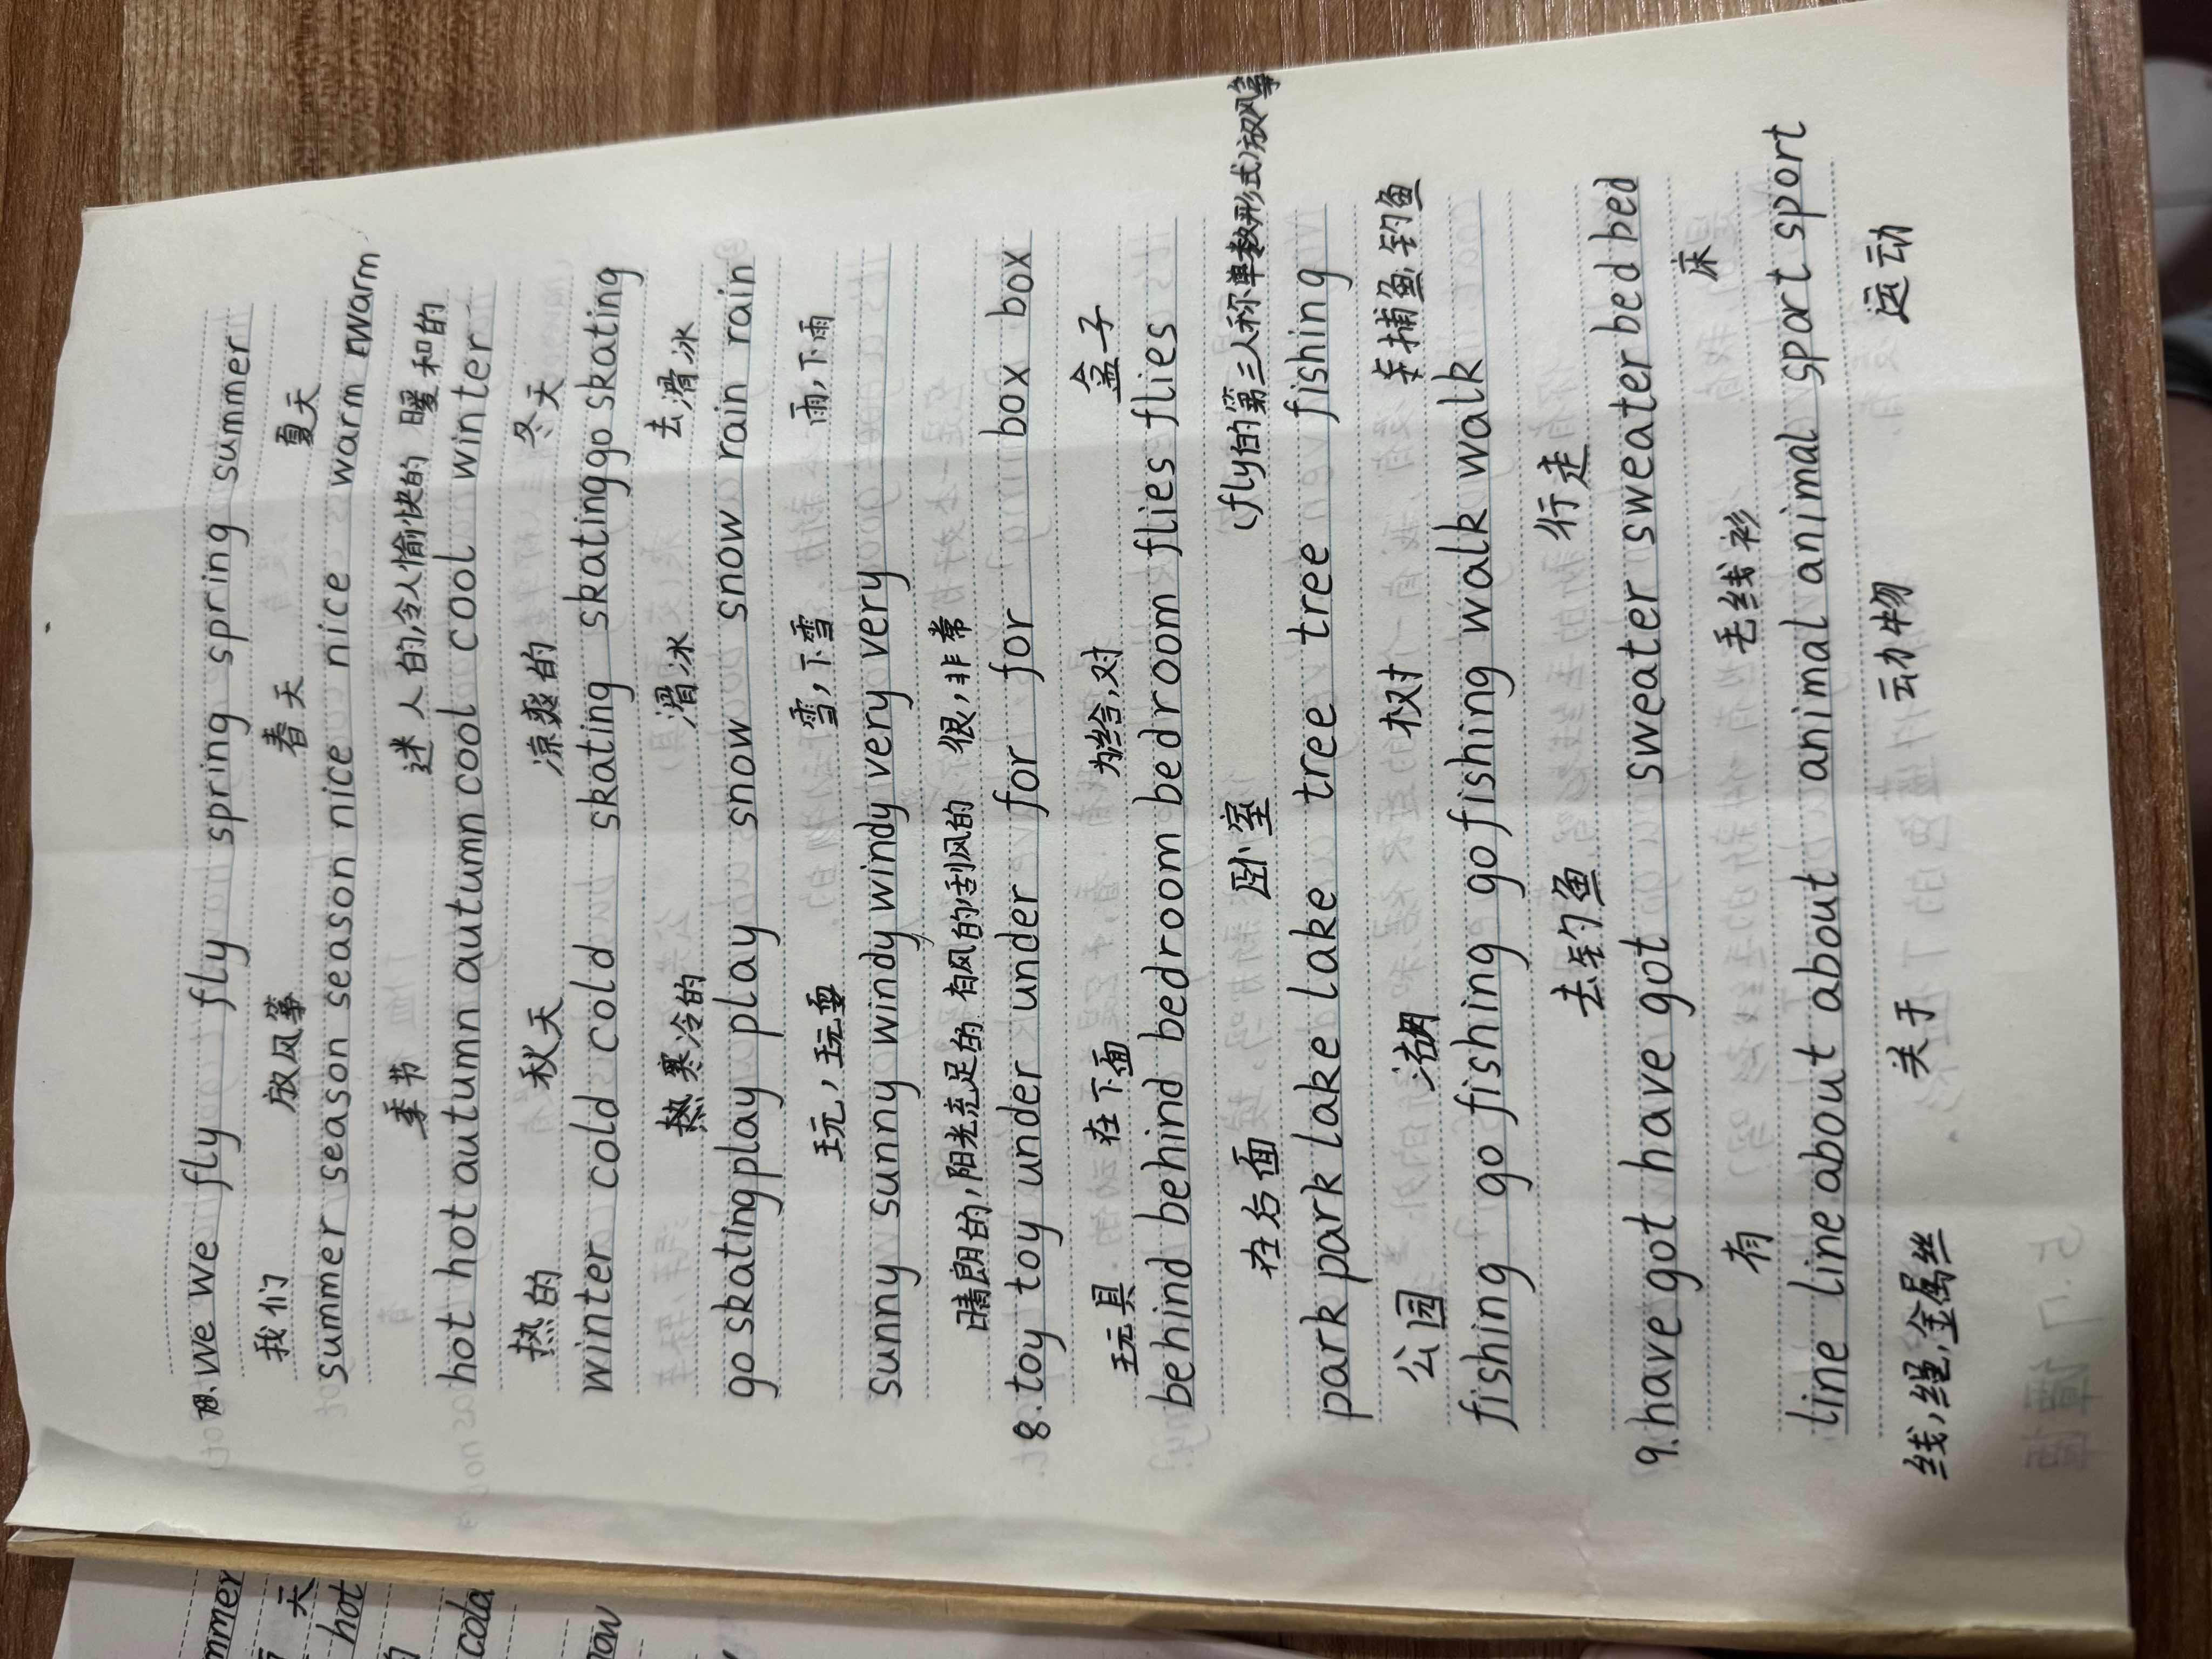 7. we we fly fly spring spring summer
我们 放风筝 春天 夏天
summer season season nice nice warm warm
季节 迷人的,令人愉快的 暖和的
hot hot autumn autumn cool cool winter
热的 秋天 凉爽的 冬天
winter cold cold skating skating go skating
热寒冷的 滑冰 去滑冰
go skating play play snow snow rain rain
玩,玩耍 雪,下雪 雨,下雨
sunny sunny windy windy very very
晴朗的,阳光充足的 有风的,刮风的 很,非常
8. toy toy under under for for box box
玩具 在下面 为,给,对 盒子
behind behind bedroom bedroom flies flies
在后面 卧室 (fly的第三人称单数形式)放风筝
park park lake lake tree tree fishing
公园 湖 树 捕鱼,钓鱼
fishing go fishing go fishing walk walk
去钓鱼 行走
9. have got have got sweater sweater bed bed
有 毛线衫 床
line line about about animal animal sport sport
线,绳,金属丝 关于 动物 运动
mmer
天
hot
cold
now